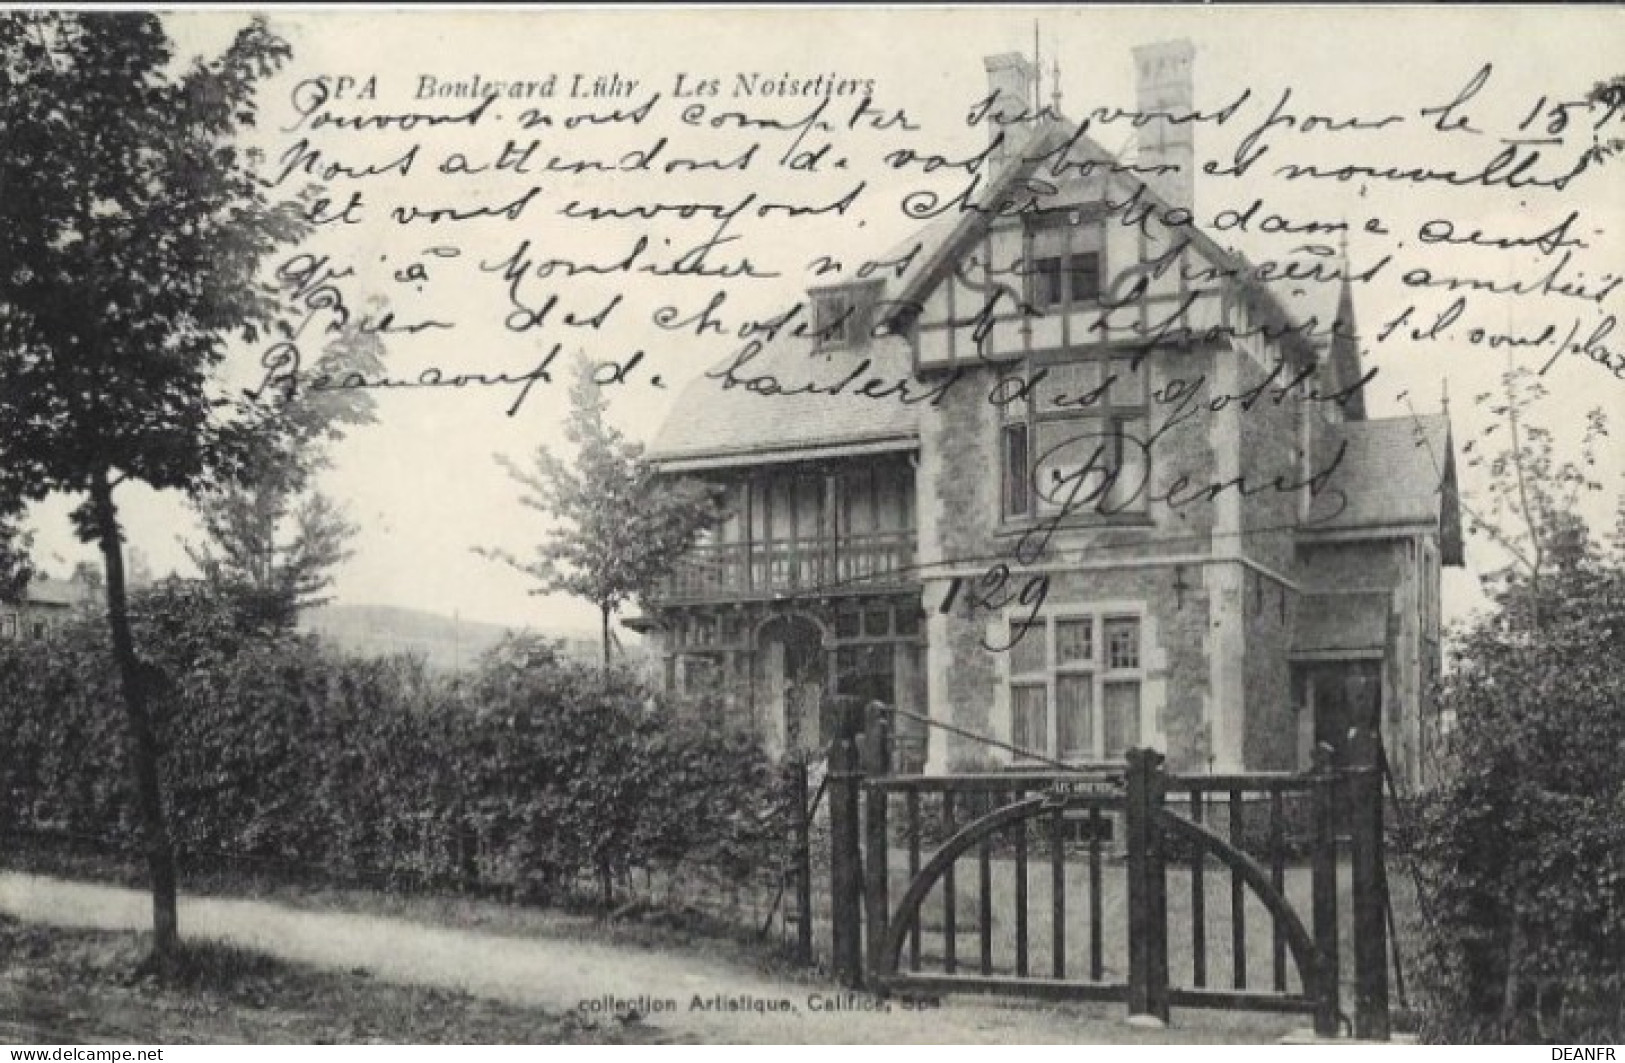 SPA Boulevard Lühr Les Noisetiers
Pouvons nous compter sur vous pour le 15
Nous attendons de vos bonnes nouvelles
et vous envoyons, Chère Madame, ainsi
qu'à Monsieur nos sincères amitiés
Bien des choses à Lepouse s'il vous plait
Beaucoup de baisers des gosses.
Denis
129
collection Artistique, Califice, Spa
DEANFR
www.delcampe.net